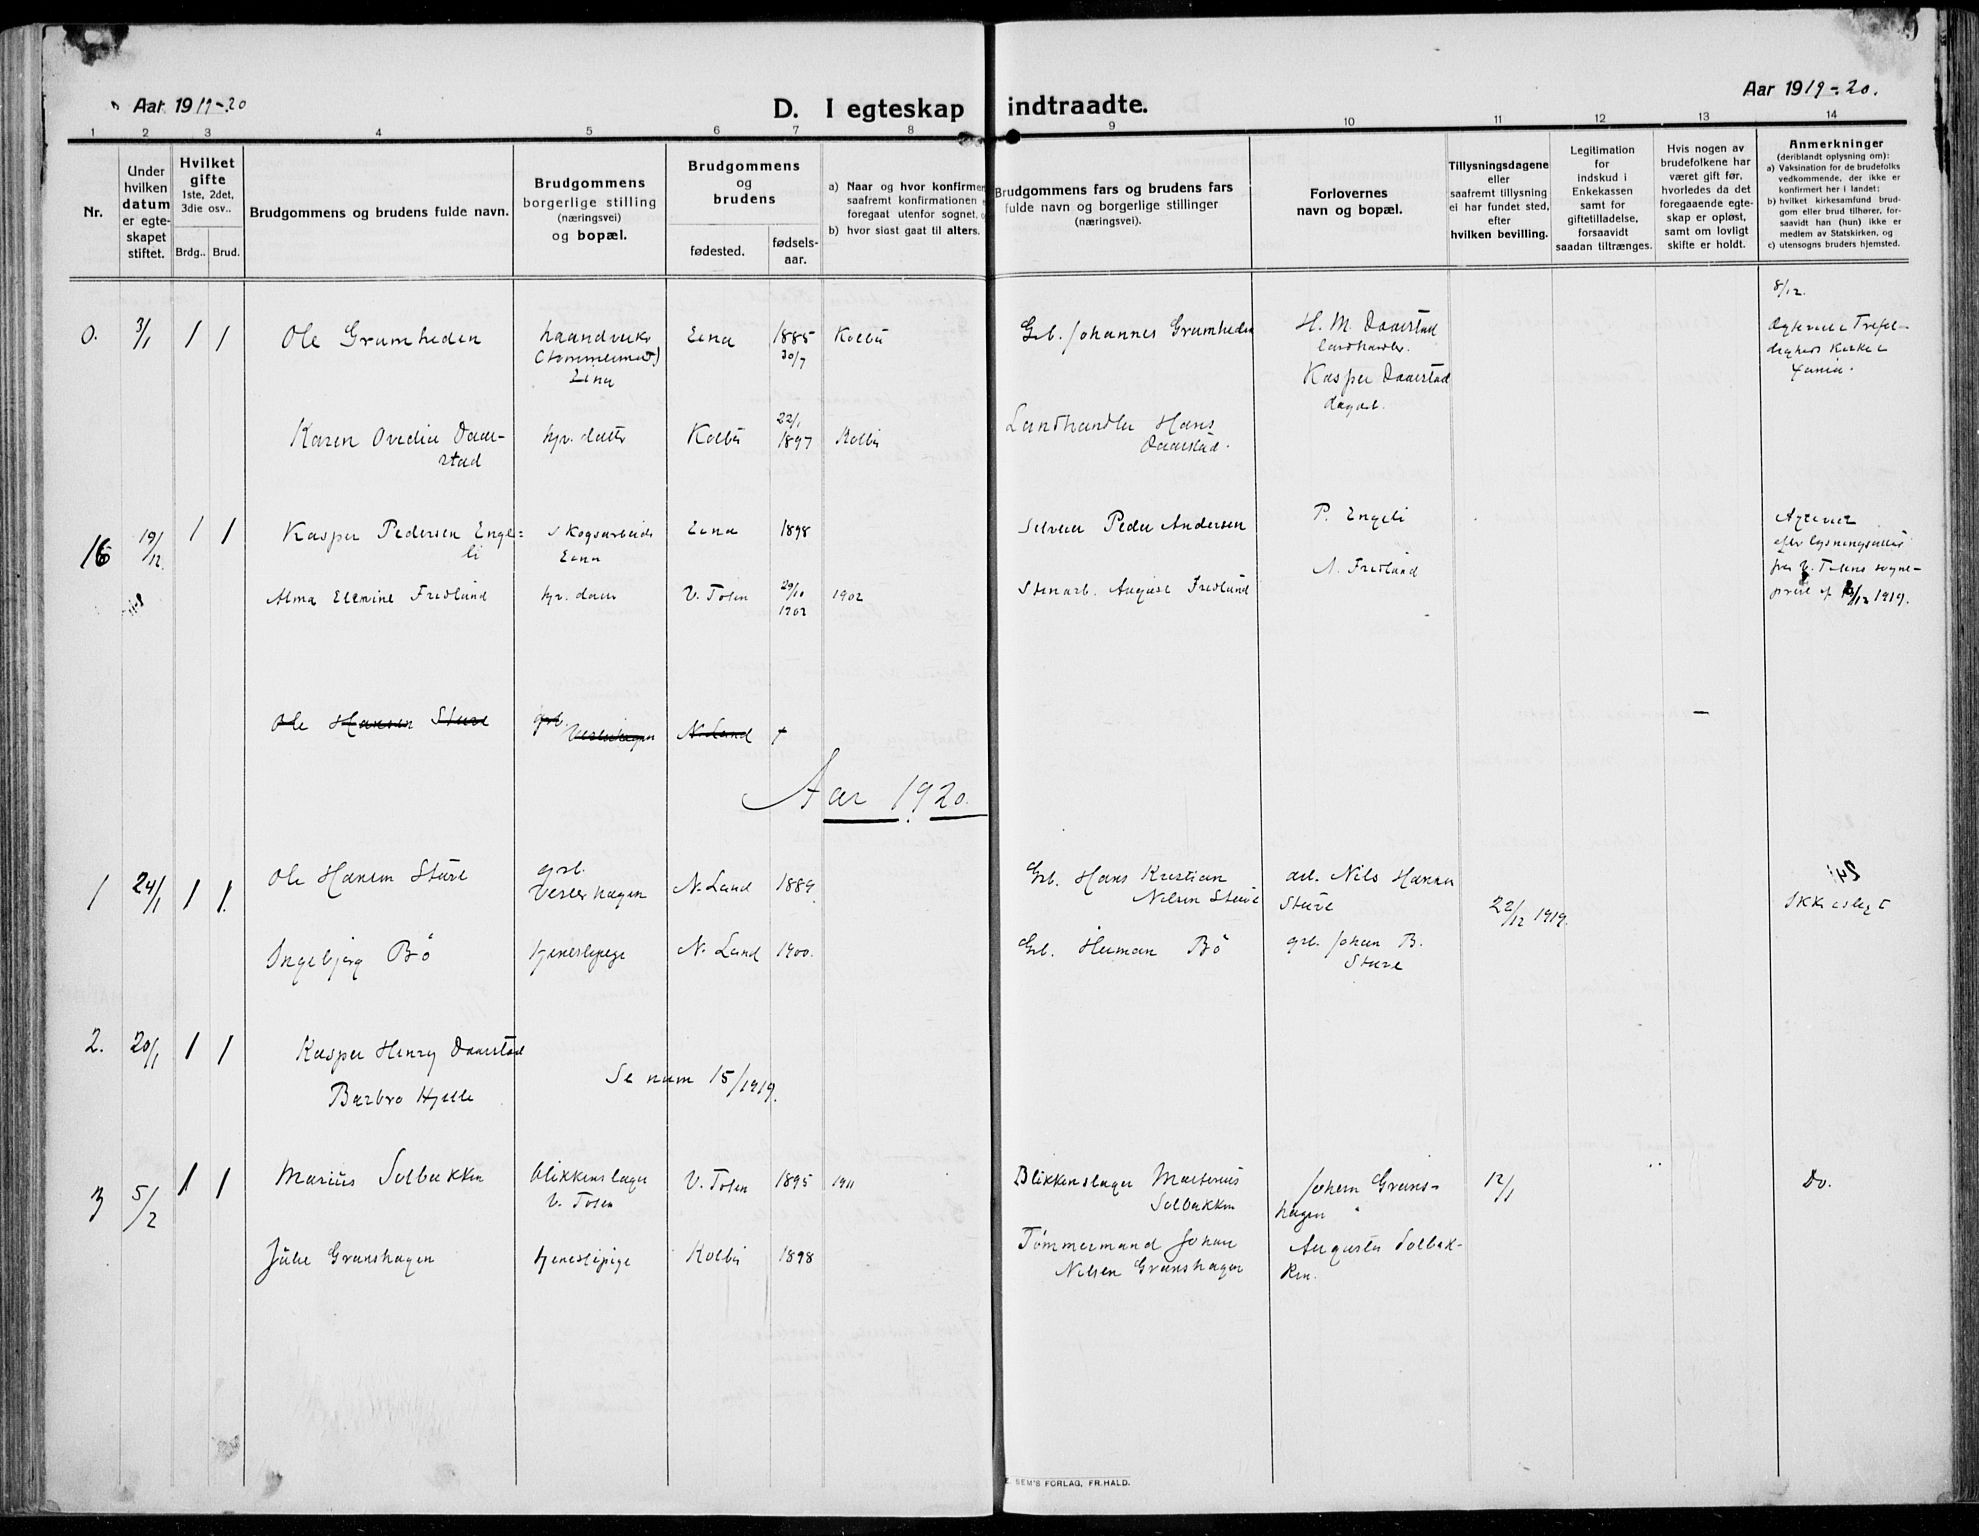 Aar 1919-20
D. I egteskap indtraadte.
Aar 1919-20.
1 2 3 4 5 6 7 8 9 10 11 12 13 14
Nr.
Under hvilken datum er egteskapet stiftet.
Hvilket gifte
1ste, 2det, 3die osv..
Brdg.. Brud.
Brudgommens og brudens fulde navn.
Brudgommens borgerlige stilling (næringsvei) og bopæl.
Brudgommens og brudens
fødested.
fødsels-aar.
a) Naar og hvor konfirmer
saafremt konfirmationen
foregaat utenfor sognet,
b) hvor sidst gaat til alters.
Brudgommens fars og brudens fars
fulde navn og borgerlige stillinger
(næringsvei).
Forlovernes
navn og bopæl.
Tillysningsdagene
eller
saafremt tillysning
ei har fundet sted,
efter
hvilken bevilling.
Legitimation
for
indskud i
Enkekassen
samt for
giftetilladelse,
forsaavidt
saadan tiltrænges.
Hvis nogen av
brudefolkene har
været gift før,
hvorledes da det
foregaaende egte-
skap er opløst,
samt om lovligt
skifte er holdt.
Anmerkninger
(deriblandt oplysning om):
a) Vaksination for de brudefolks
vedkommende, der ikke er
konfirmert her i landet;
b) hvilket kirkesamfund brud-
gom eller brud tilhører, for-
saavidt han (hun) ikke er
medlem av Statskirken, og
c) utensogns bruders hjemsted.
8/12.
0. 3/1 1 1 Ole Grumheden haandverker Eina 1885 Kolbu Grb. Johannes Grumheden H. M. Daarstad
(tømmermand) 30/7 landhandler.
Eina Kasper Daarstad
dagarb.
Karen Ovedia Daar- hjv. datter Kolbu 22/1 1897 Kolbu Landhandler Hans
stad Daarstad.
16 19/12 1 1 Kasper Pedersen Enge- Skogsarbeider Eina 1898 Selveier Peder Andersen P. Engeli
li Eina
efter lysningsattest
fra V. Totens sogne-
prest af 1919.
Alma Elemine Fredlund hjv. datter V. Toten 29/10 1902 1902 Stenarb. August Fredlund A. Fredlund
Ole Hansen Sture grb. N. Land
Aar 1920.
1 24/1 1 1 Ole Hansen Sture grb. N. Land 1889. Grb. Hans Kristian arb. Nils Hansen 22/12 1919. Ikke slegt
Veslerhagen Nilsen Sture Sture
Ingebjørg Bö tjenestepige N. Land 1900. Grb. Herman Bö grb. Johan B.
Sture
2. 20/1 1 1 Kasper Henry Daarstad
Se num 15/1919.
Barbro Hjelle
3 5/2 1 1 Marius Solbakken blikkenslager V. Toten 1895 1911 Blikkenslager Martinius Johan Grans- 12/1 Do.
V. Toten Solbakken hagen
Julie Granshagen tjenestepige Kolbu 1898 Tømmermand Johan August Solbak-
Nilsen Granshagen ken.
SEM'S FORLAG, FR.HALD.